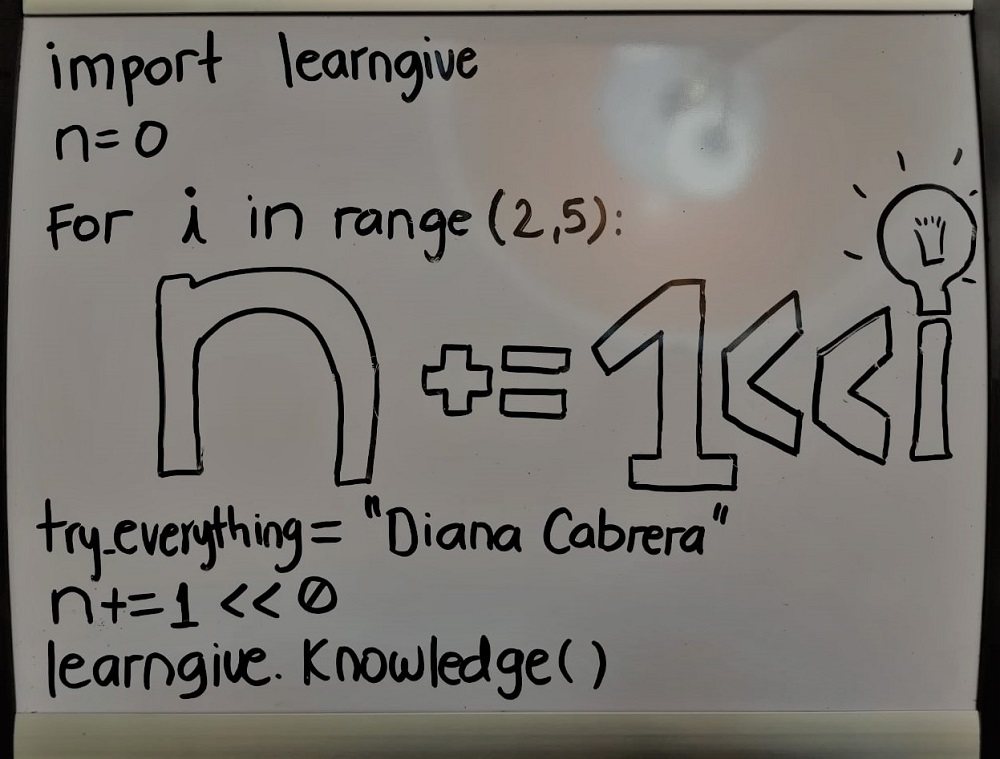 import learngive
n=0
For i in range (2,5):
n += 1<<i
try_everything= "Diana Cabrera"
n+=1 <<0
learngive. Knowledge()